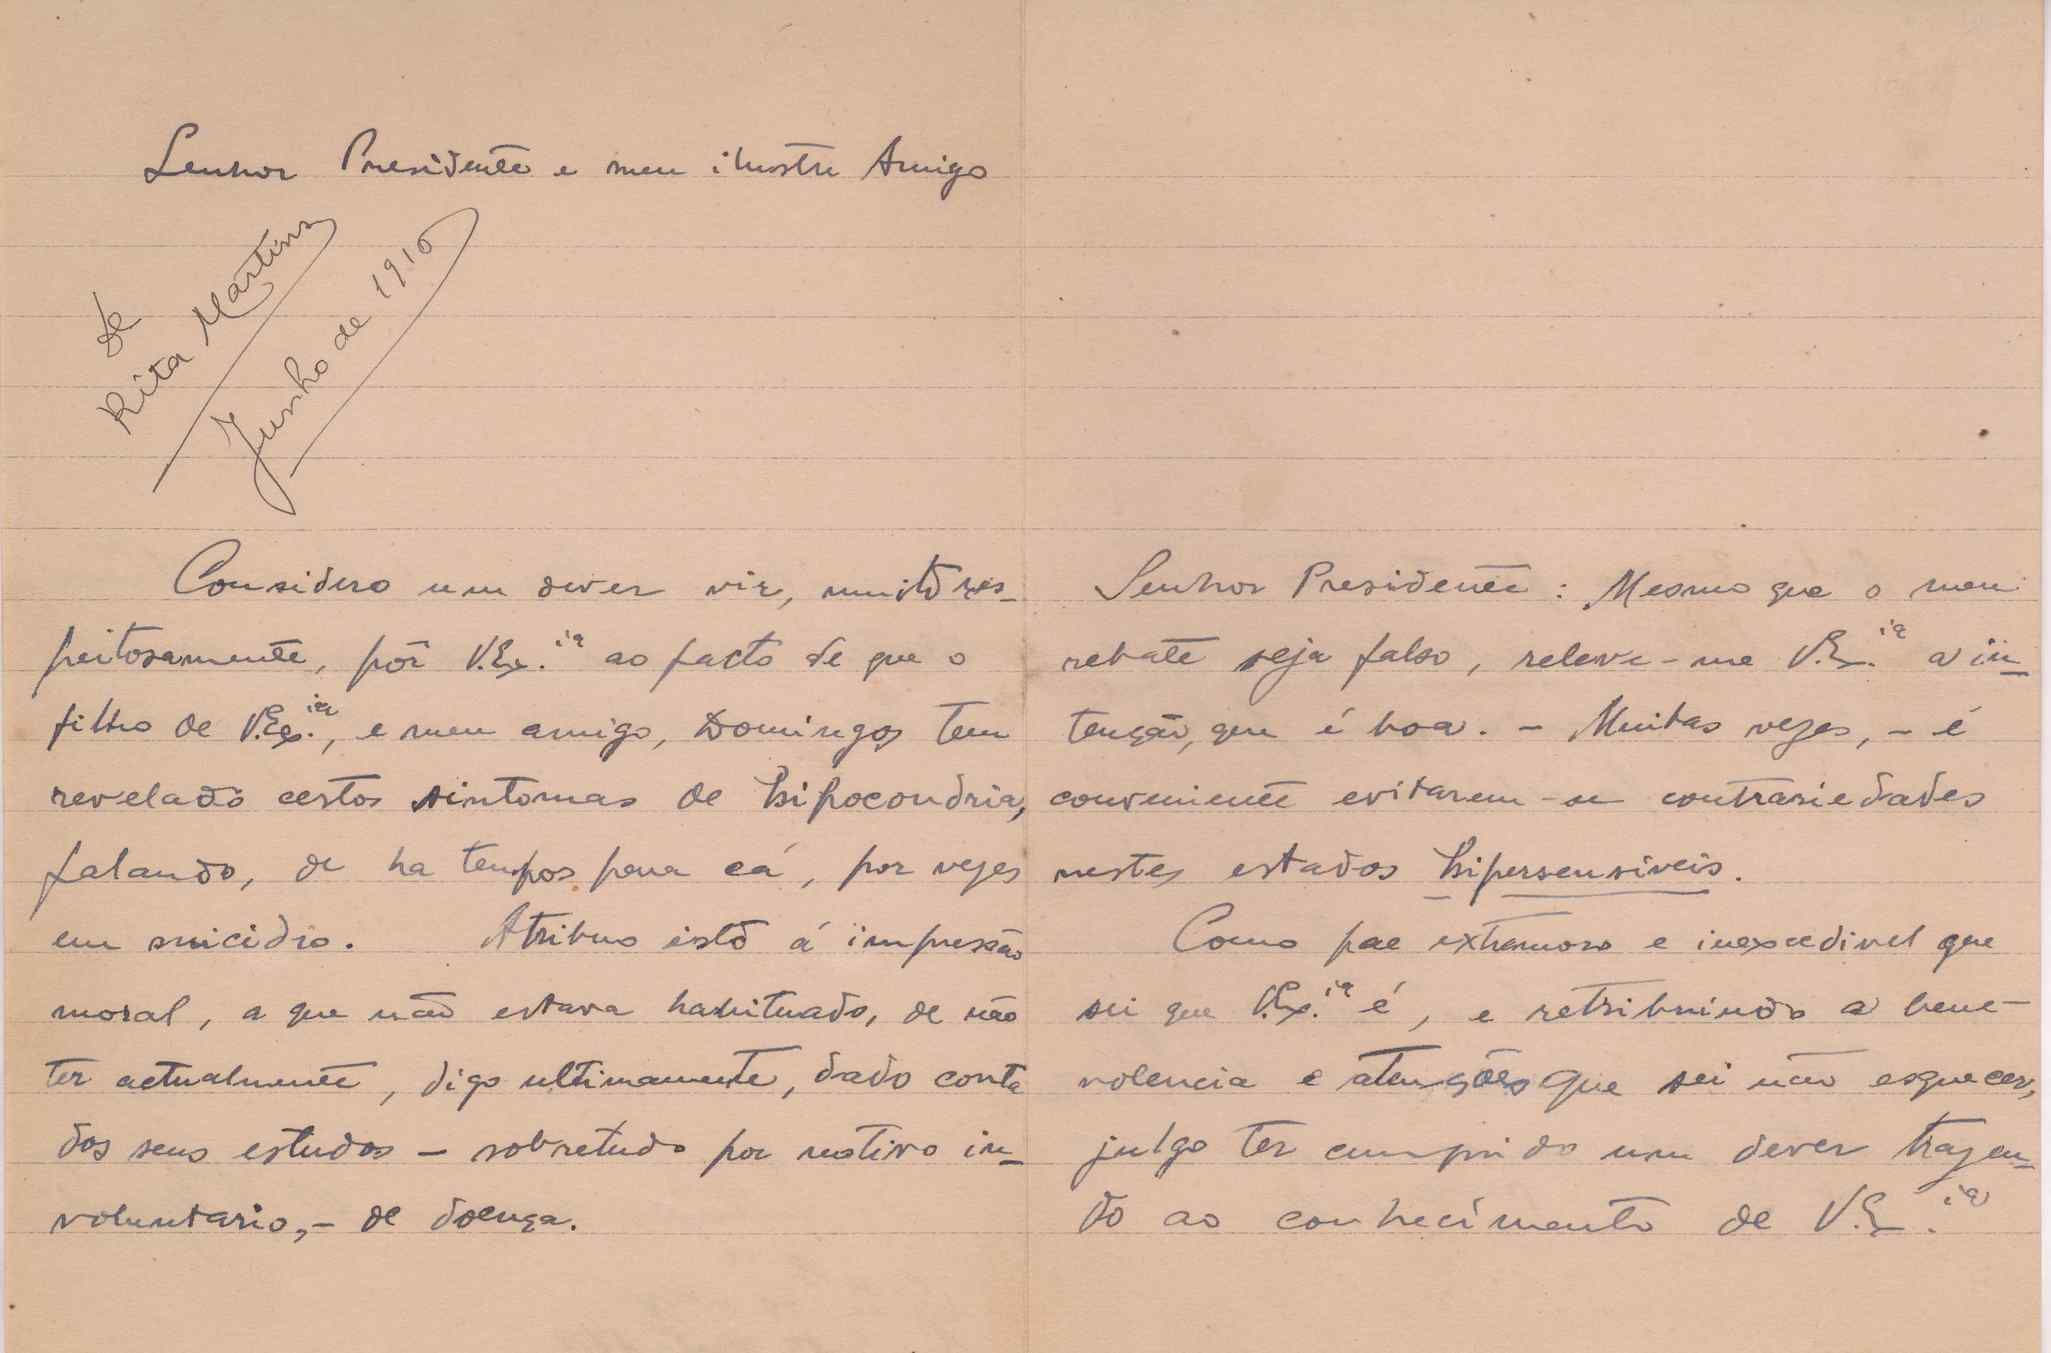 Senhor Presidente e meu ilustre Amigo
de
Rita Martins
Junho de 1910
Considero um dever vir, muito res-
peitosamente, pôr V.Ex.ia ao facto de que o
filho de V.Ex.ia, e meu amigo, Domingos tem
revelado certos sintomas de hipocondria,
falando, de ha tempos para cá, por vezes
em suicidio. Atribuo isto á impressão
moral, a que não estava habituado, de não
ter actualmente, digo ultimamente, dado conta
dos seus estudos – sobretudo por motivo in-
voluntario, – de doença.
Senhor Presidente: Mesmo que o meu
rebate seja falso, releve-me V.Ex.ia a in-
tenção, que é boa. – Muitas vezes, – é
conveniente evitarem-se contrariedades
nestes estados hipersensiveis.
Como pae extremoso e inexcedivel que
sei que V.Ex.ia é, e retribuindo a bene-
volencia e atenções que sei não esquecer,
julgo ter cumprido um dever trazen-
do ao conhecimento de V.Ex.ia